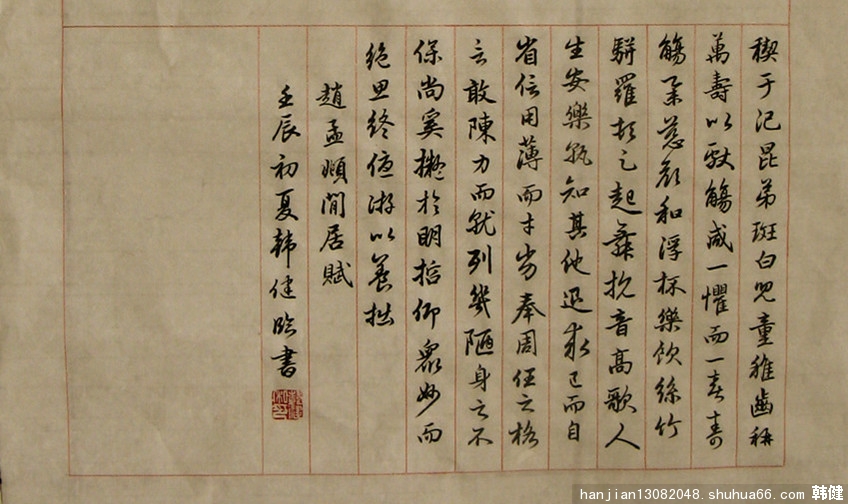 禊于汜昆弟斑白兒童稚齒稱
萬壽以獻觴咸一懼而一喜壽
觴舉慈顏和浮杯樂飲絲竹
駢羅頓足起舞抗音高歌人
生安樂孰知其他退求己而自
省信用薄而才劣奉周任之格
言敢陳力而就列幾陋身之不
保尚奚擬於明哲仰眾妙而
絕思終優游以養拙
趙孟頫閒居賦
壬辰初夏韓健臨書
hanjian13082048.shuhua66.com 韩健